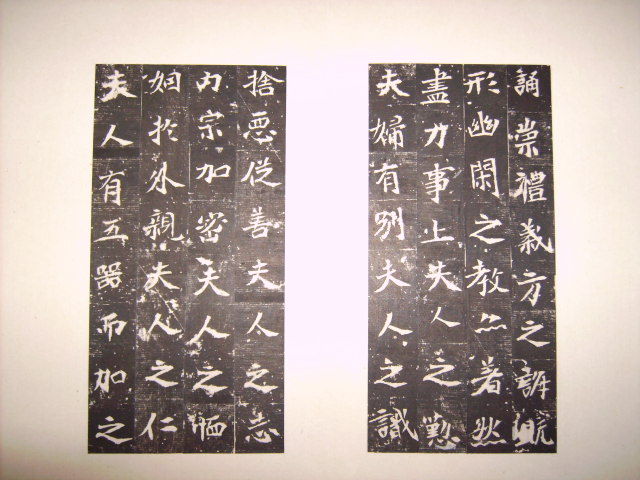 誦崇禮義方之既
形幽閑之教亦著然
盡力事上夫人之懃
夫婦有別夫人之識
捨惡從善夫人之志
內宗加密夫人之
姻於外親夫人之仁
夫人有五器而加之